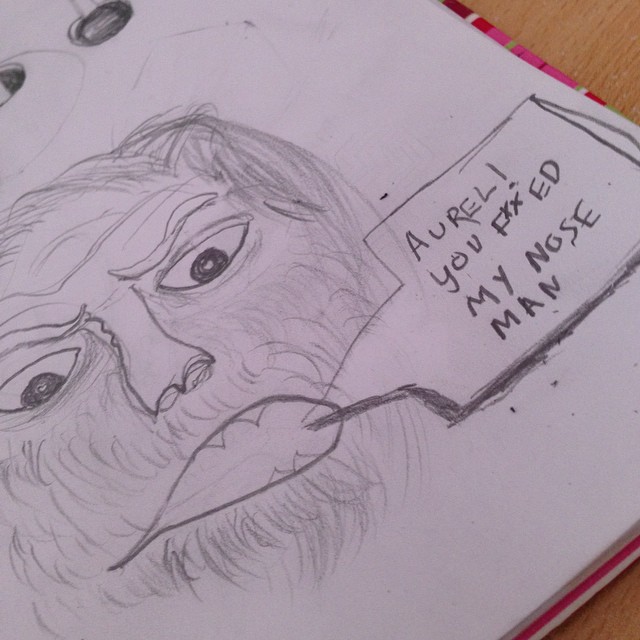 AURELI
YOU F**ED
MY NOSE
MAN